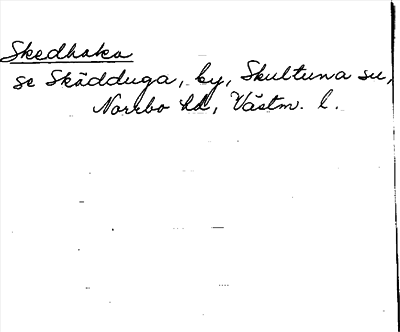 Skedhaka
se Skädduga, by, Skultuna sn,
Norrbo hd, Västm. l.